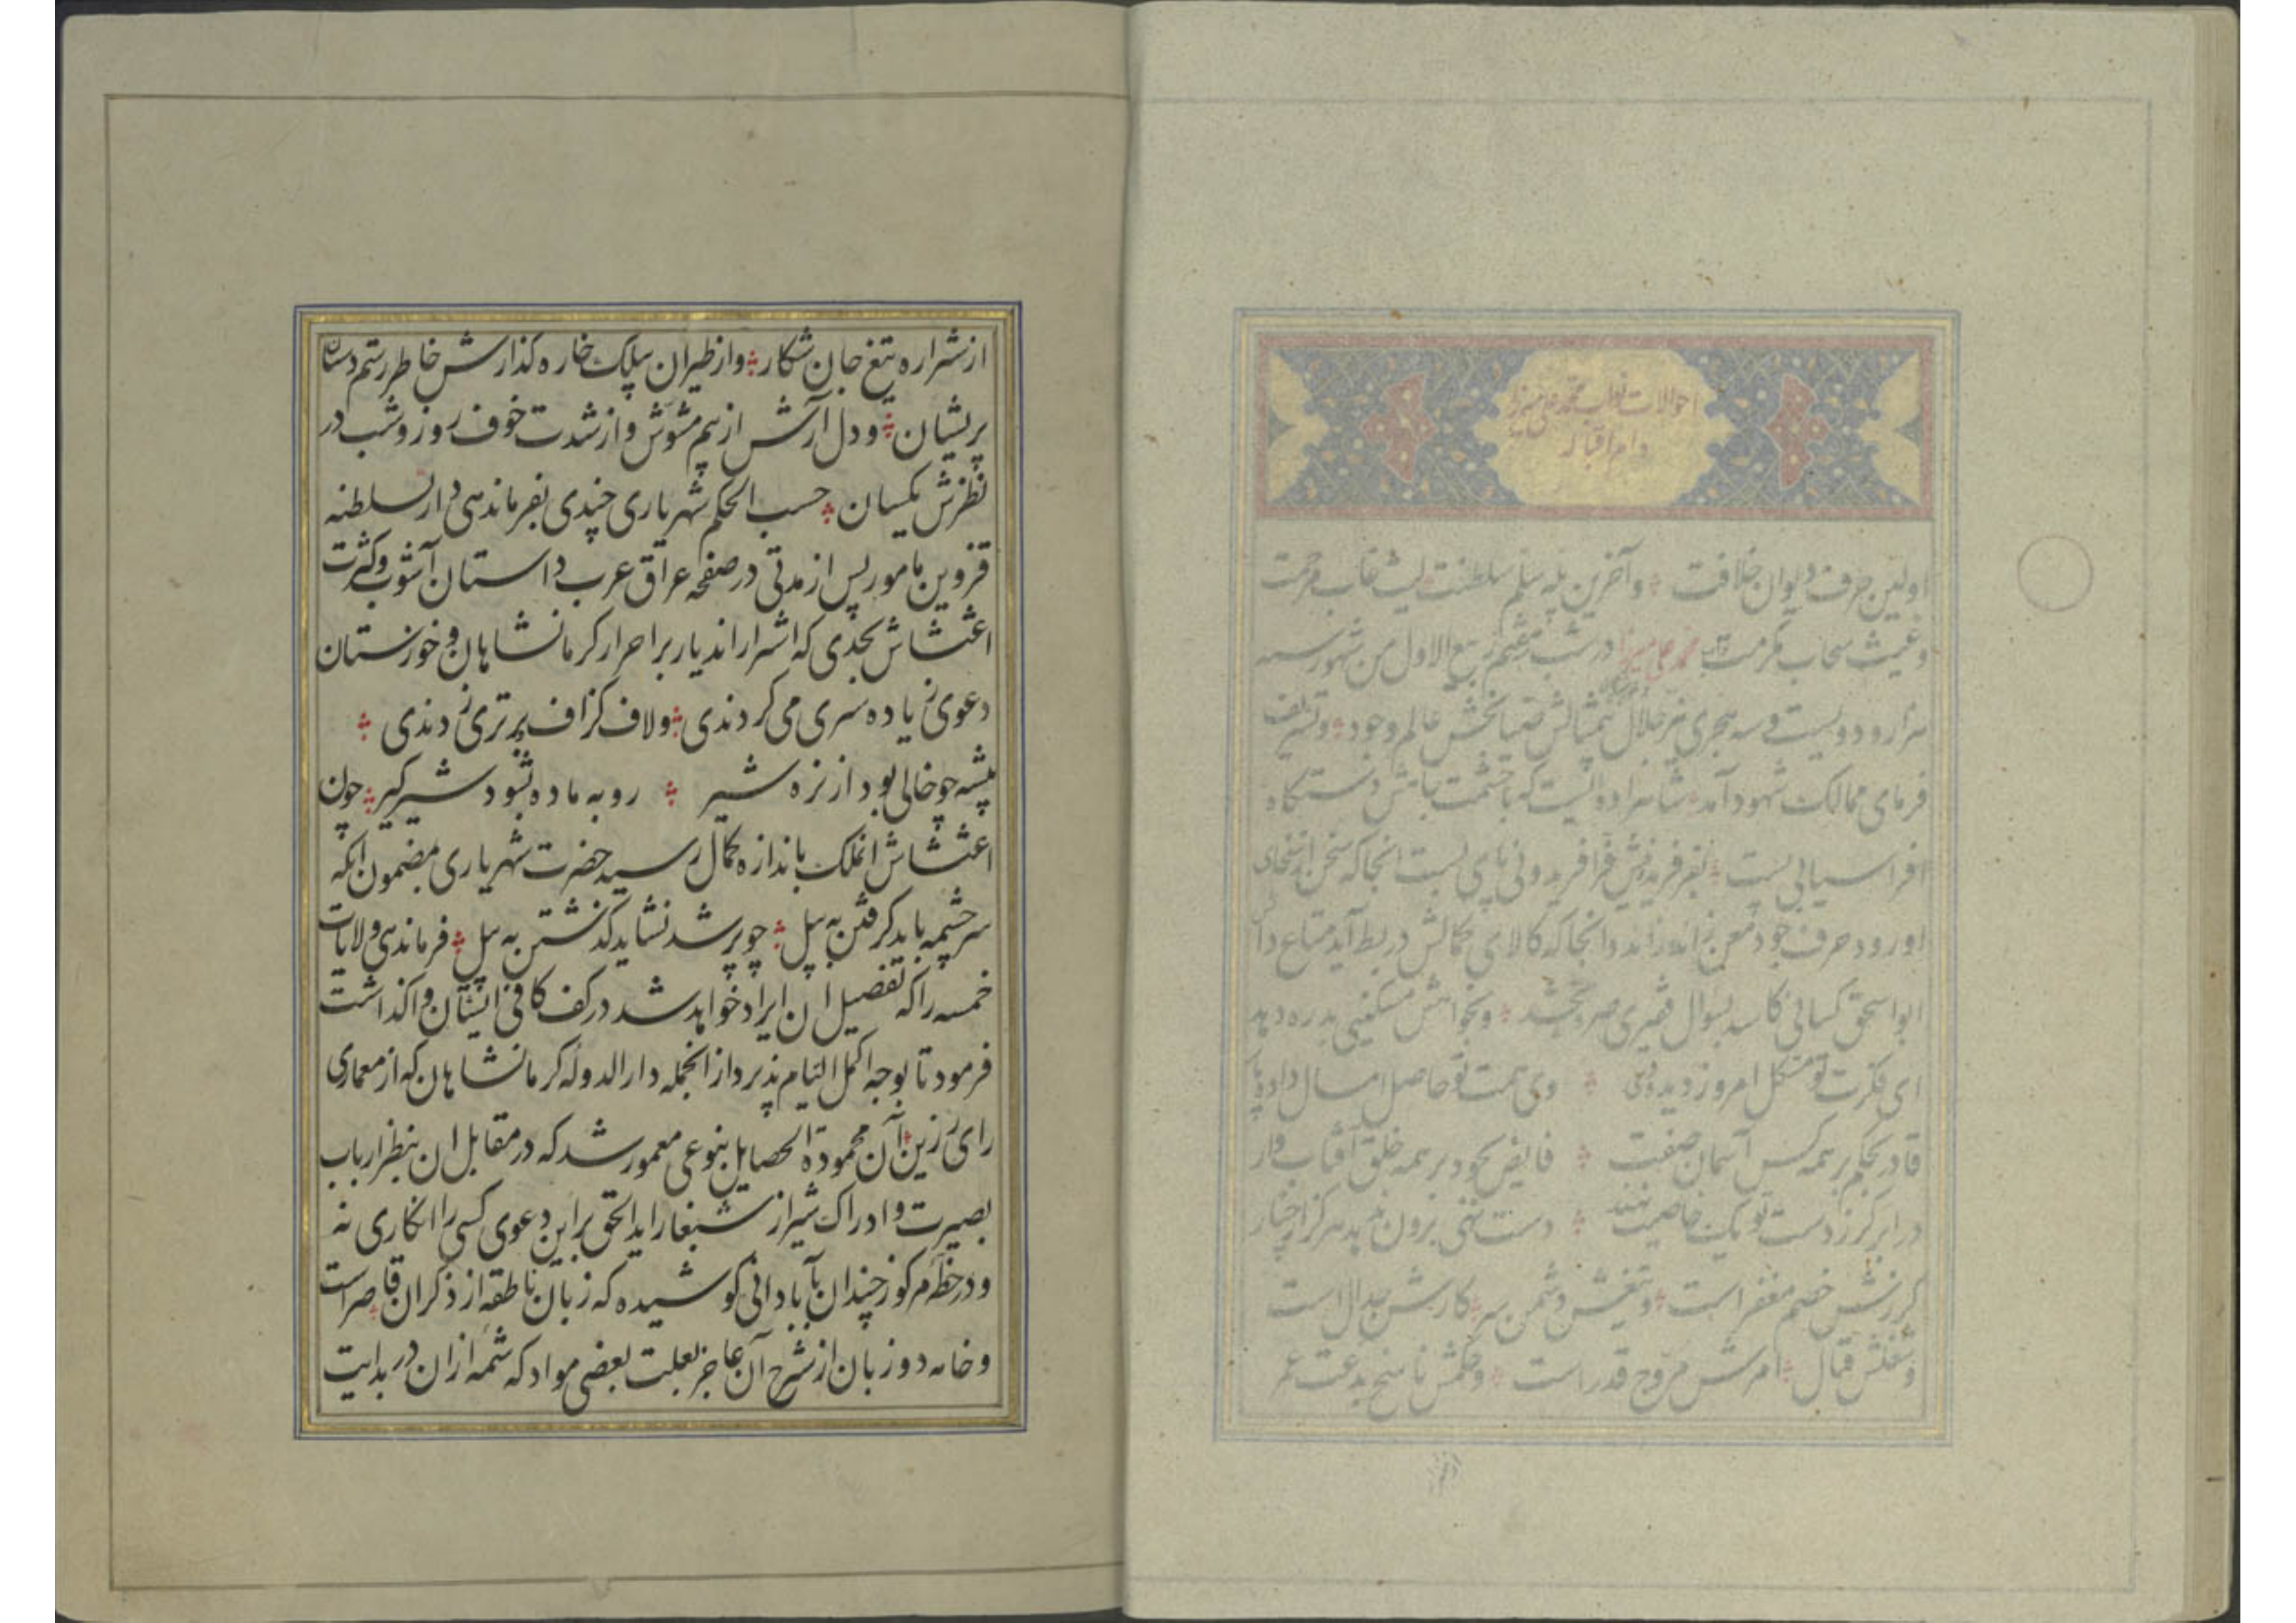 احوالات نواب محمد علی میرزا
دام اقباله
اولین حرف دیوان خلافت و آخرین پله سلم سلطنت لیث غاب مرحمت
و غیث سحاب مکرمت محمد علی میرزا در شب هفتم ربیع الاول من شهور سنه
هزار و دویست و سه هجری نیر جلال بیمثالش ضیابخش عالم وجود و تشریف
فرمای ممالک شهود آمد شاهزاده ایست که با حشمت دستگاه
افراسیابی پست بفر فریدونیش فر افریدونی پای بست انجا که سخن از سخای
او رود حرف جود معن زانده راند و انجا که کالای کمالش در بط آید متاع
ابواسحق کسائی کاسد بسوال فقیری صره بخشد و بخواهش مسکینی بدره دهد
ای فکرت تو مشکل امروز دیده دی وی همت تو حاصل امسال داده پار
قادر بحکم بر همه کس آسمان صفت فایض بجود بر همه خلق آفتاب وار
در ابر گر ز دست تو یک خاصیت نهند دست تهی برون ندمد هرگز از چنار
گرزش خصم مغفر است و تیغش دشمن سر کارش جدال است
و شغلش قتال امرش مروج قدر است و حکمش ناسخ بدعت عمر
از شراره تیغ جان شکار و از طیران بیلک خاره گذارش خاطر رستم دستان
پریشان و دل آرش از بیم مشوش و از شدت خوف روز و شب در
نظرش یکسان حسب الحکم شهریاری چندی بفرماندهی دار السلطنه
قزوین مامور پس از مدتی در صفحه عراق عرب داستان آشوب و کثرت
اغتشاش بحدی که اشرار اندیار بر احرار کرمانشاهان و خوزستان
دعوی زیاده سری می کردندی و لاف گزاف برتری زدندی
بیشه چو خالی بود از نره شیر روبه ماده شود شیرگیر چون
اغتشاش انملک باندازه کمال رسید حضرت شهریاری مضمون انکه
سرچشمه باید گرفتن به بیل چو پر شد نشاید گذشتن به پیل فرماندهی ولایات
خمسه را که تفصیل ان ایراد خواهد شد در کف کافی ایشان واگذاشت
فرمود تا بوجه اکمل التیام پذیرد از انجمله دار الدوله کرمانشاهان که از معماری
رای رزین آن محمودة الخصایل بنوعی معمور شد که در مقابل ان بنظر ارباب
بصیرت و ادراک شیراز شبغار اید الحق بر این دعوی کسی را انکاری نه
و در خطه مرکوز چندان بآبادانی کوشیده که زبان ناطقه از ذکر ان قاصر است
و خامه دو زبان از شرح آن عاجز بعلت بعضی مواد که شمه از ان در بدایت